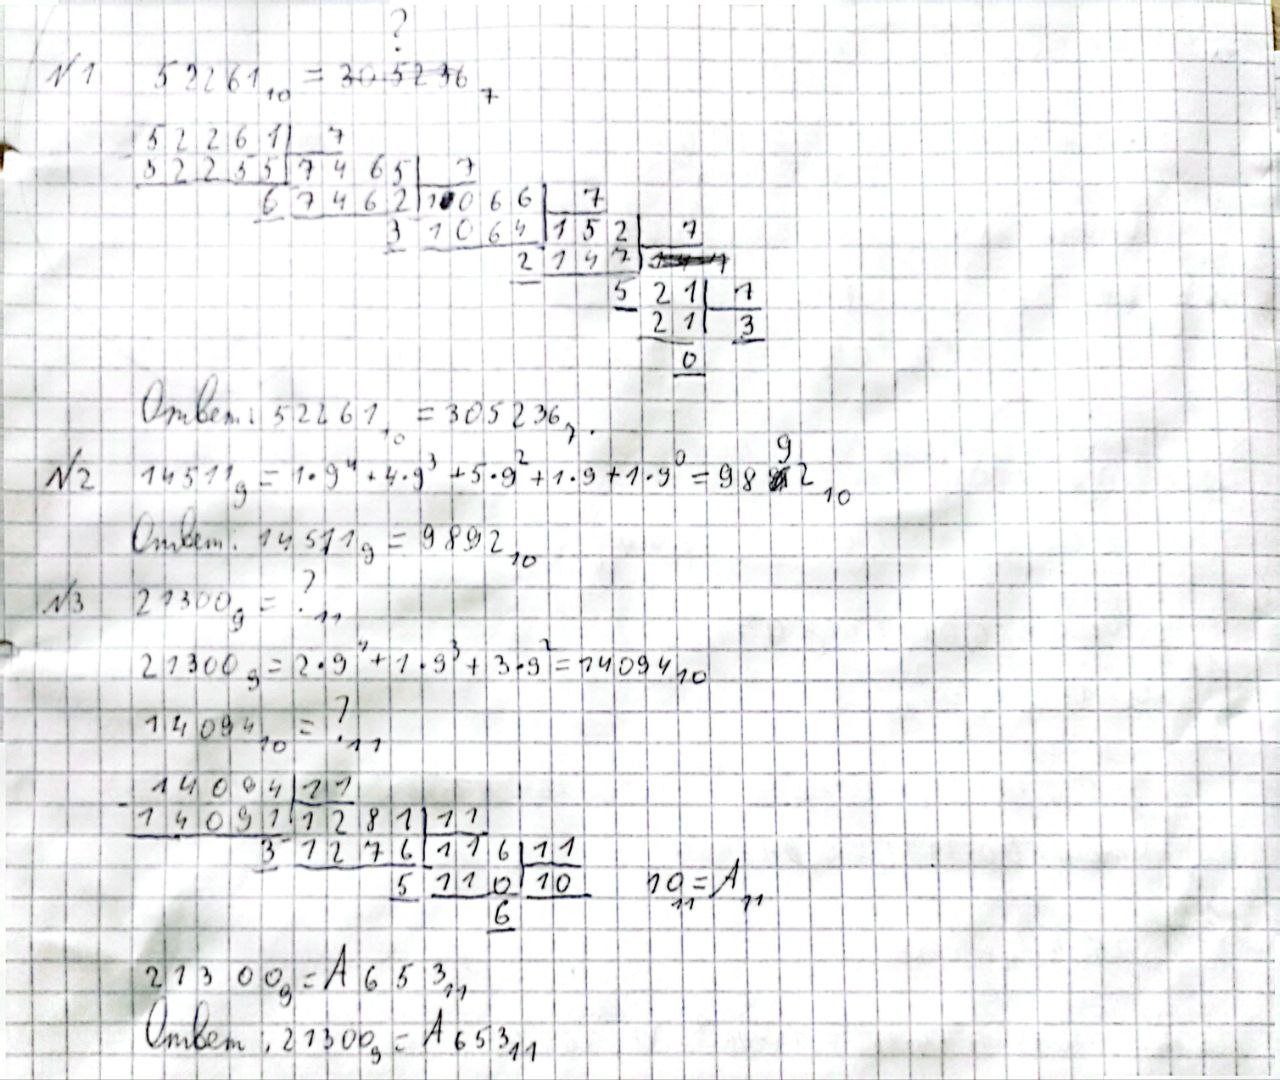 ?
№1 52261₁₀ = 305236₇
52261 | 7
52255 | 7465 | 7
6 7462 | 1066 | 7
3 1064 | 152 | 7
2 147
5 21 | 7
21 | 3
0
Ответ: 52261₁₀ = 305236₇.
9
№2 14511₉ = 1·9⁴ + 4·9³ + 5·9² + 1·9 + 1·9⁰ = 98 2₁₀
Ответ: 14511₉ = 9892₁₀
№3 21300₉ = ?₁₁
21300₉ = 2·9⁴ + 1·9³ + 3·9² = 14094₁₀
14094₁₀ = ?₁₁
14094 | 11
14091 | 1281 | 11
3 1276 | 116 | 11
5 110 | 10 10₁₁ = A₁₁
6
21300₉ = A653₁₁
Ответ: 21300₉ = A653₁₁